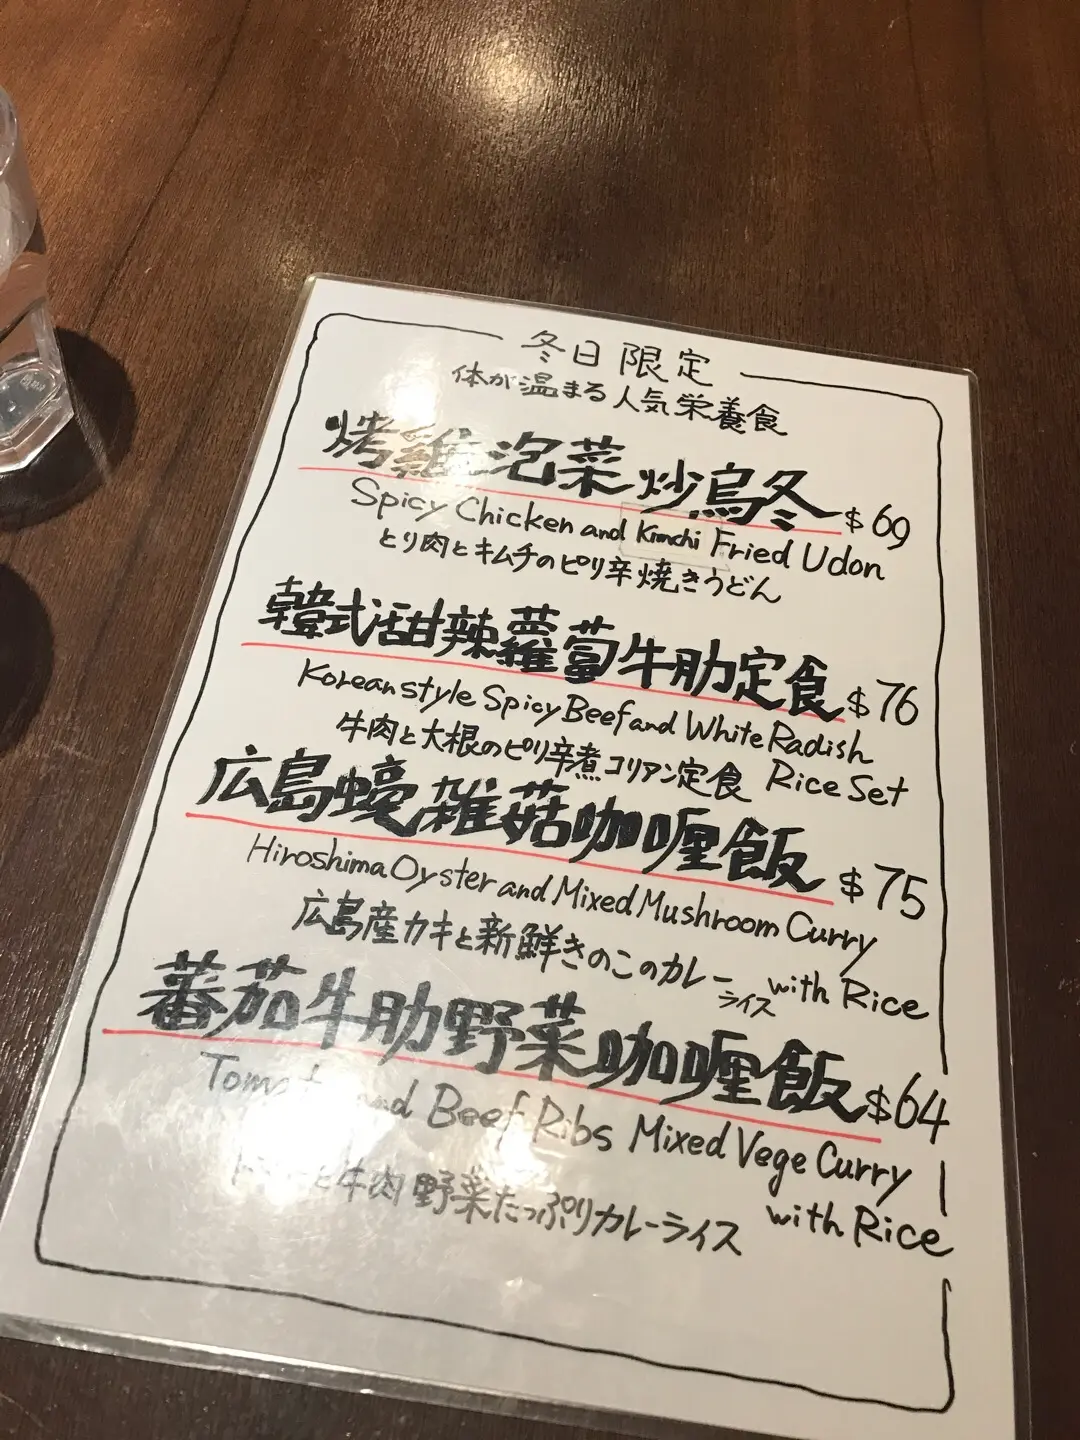 冬日限定
体が温まる人気栄養食
烤雞泡菜炒烏冬 $69
Spicy Chicken and Kimchi Fried Udon
とり肉とキムチのピリ辛焼きうどん
韓式甜辣蘿蔔牛肋定食 $76
Korean style Spicy Beef and White Radish
Rice Set
牛肉と大根のピリ辛煮コリアン定食
広島蠔雑菇咖喱飯 $75
Hiroshima Oyster and Mixed Mushroom Curry
with Rice
広島産カキと新鮮きのこのカレー
ライス
蕃茄牛肋野菜咖喱飯 $64
and Beef Ribs Mixed Vege Curry
with Rice
と牛肉野菜たっぷりカレーライス